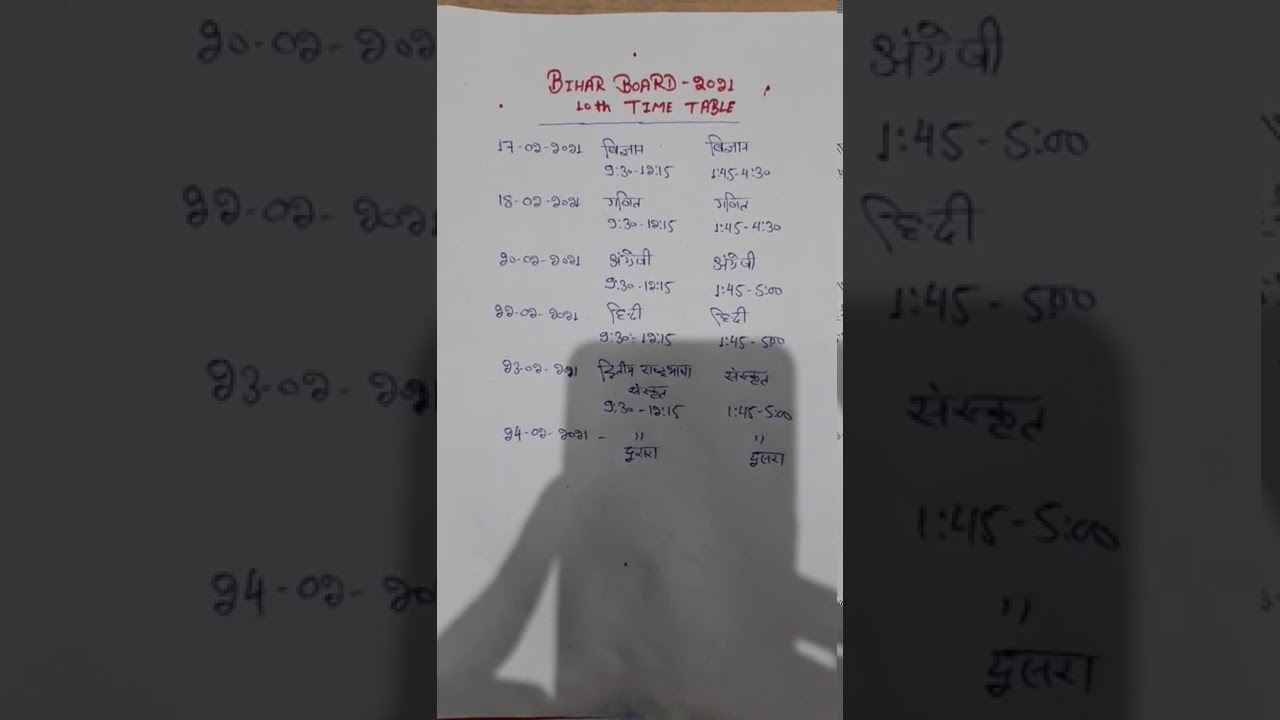 BIHAR BOARD - 2021
10th TIME TABLE
17-02-2021 विज्ञान विज्ञान
9:30-12:15 1:45-4:30
18-02-2021 गणित गणित
9:30-12:15 1:45-4:30
20-02-2021 अंग्रेजी अंग्रेजी
9:30-12:15 1:45-5:00
22-02-2021 हिन्दी हिन्दी
9:30-12:15 1:45-5:00
23-02-2021 द्वितीय राष्ट्रभाषा संस्कृत
संस्कृत
9:30-12:15 1:45-5:00
24-02-2021 - '' ''
दूसरा दूसरा